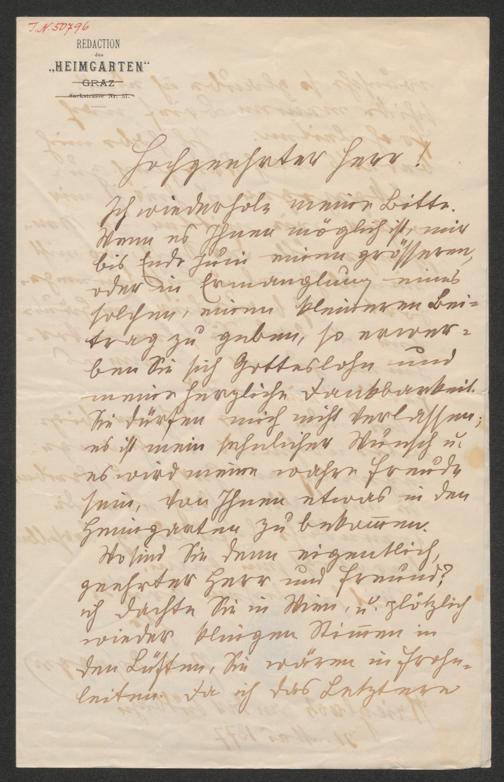 J.N. 50796
REDACTION
des
„HEIMGARTEN“
GRAZ
Sackstrasse Nr.
Hochgeehrter Herr!
Ich wiederhole meine Bitte.
Wenn es Ihnen möglich ist, mir
bis Ende Juni einen grösseren,
oder in Ermanglung eines
solchen, einen kleineren Bei-
trag zu geben, so erwer-
ben Sie sich Gotteslohn und
meine herzliche Dankbarkeit.
Sie dürfen mich nicht verlassen;
es ist mein sehnlicher Wunsch u.
es wird meine wahre Freude
sein, von Ihnen etwas in den
Heimgarten zu bekommen.
Wo sind Sie denn eigentlich,
geehrter Herr und Freund?
ich dachte Sie in Wien, u. plötzlich
wieder klingen Stimen in
den Lüften, Sie wären in Frohn-
leiten. Da ich das Letztere